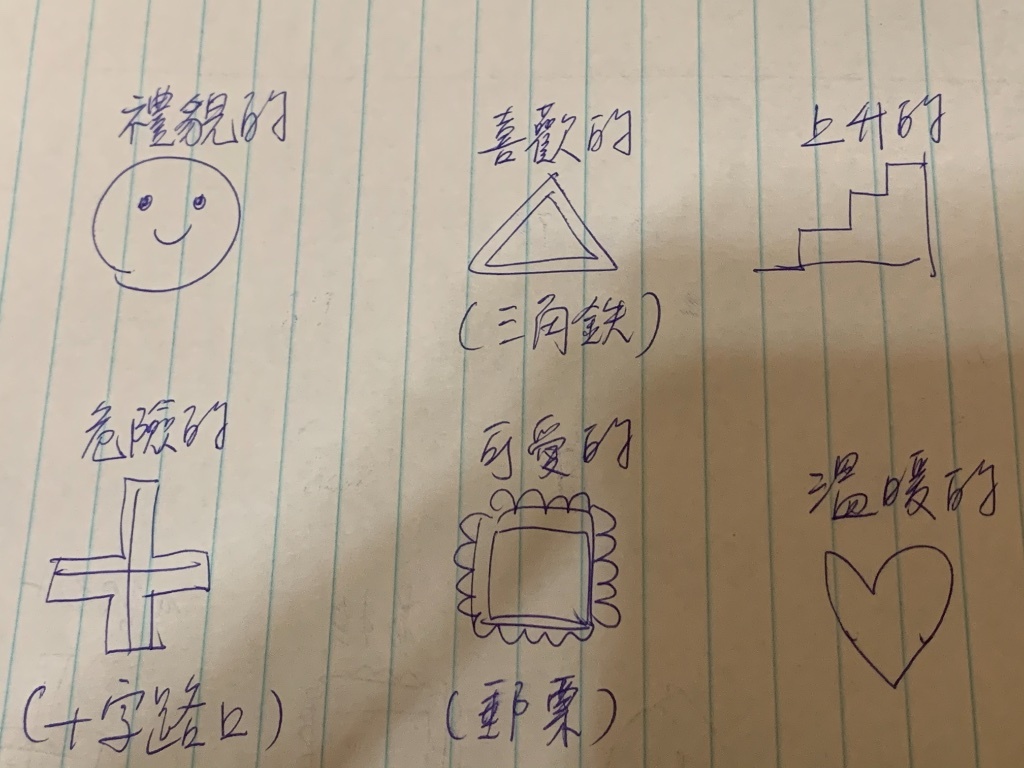 禮貌的
喜歡的
上升的
(三角鉄)
危險的
可愛的
溫暖的
(十字路口)
(郵票)